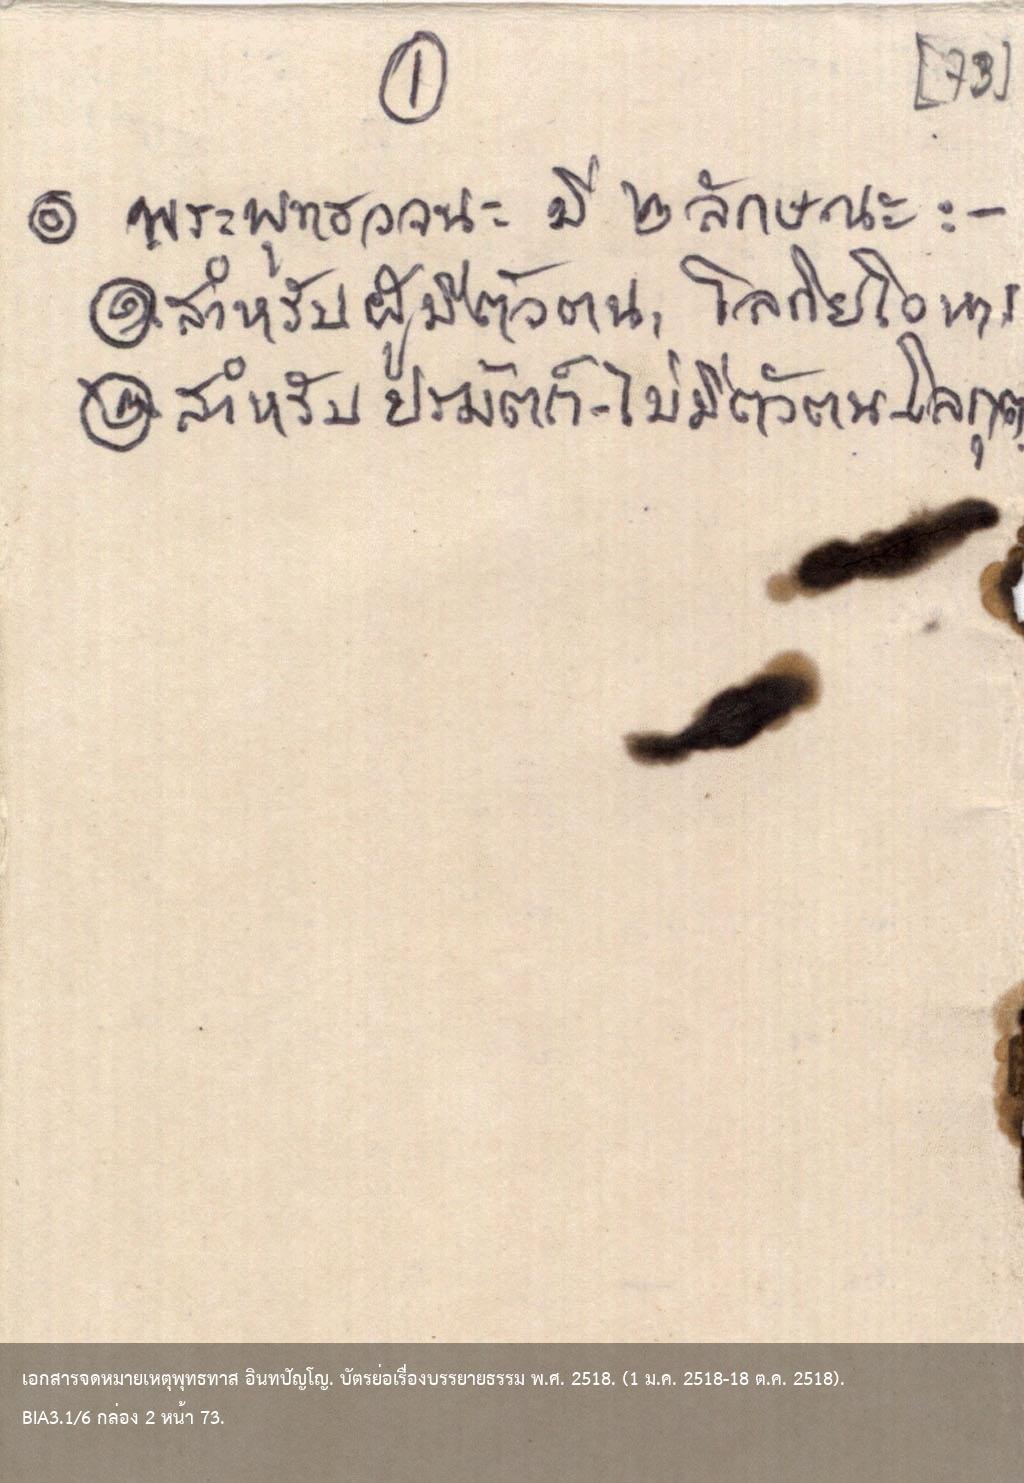 1
[73]
๏ พระพุทธวจนะ มี ๒ ลักษณะ :-
๑ สำหรับ ผู้มีตัวตน, โลกิยโวหาร
๒ สำหรับ ปรมัตถ์-ไม่มีตัวตน-โลกุต
เอกสารจดหมายเหตุพุทธทาส อินทปัญโญ. บัตรย่อเรื่องบรรยายธรรม พ.ศ. 2518. (1 ม.ค. 2518-18 ต.ค. 2518).
BIA3.1/6 กล่อง 2 หน้า 73.